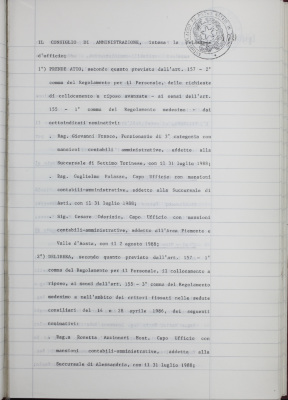 IL CONSIGLIO DI AMMINISTRAZIONE, intesa la relazione
d'ufficio:
1°) PRENDE ATTO, secondo quanto previsto dall'art. 157 - 2°
comma del Regolamento per il Personale, delle richieste
di collocamento a riposo avanzate - ai sensi dell'art.
155 - 1° comma del Regolamento medesimo - dai
sottoindicati nominativi:
. Rag. Giovanni Franco, Funzionario di 3° categoria con
mansioni contabili - amministrative, addetto alla
Succursale di Settimo Torinese, con il 31 luglio 1980;
. Rag. Guglielmo, Capo Ufficio con mansioni
contabili-amministrative, addetto alla Succursale di
Asti, con il 31 luglio 1980;
. Sig. Cesare Fabrizio, Capo Ufficio con mansioni
contabili-amministrative, addetto all'Area Piemonte e
Valle d'Aosta, con il 2 agosto 1980;
2°) DELIBERA, secondo quanto previsto dall'art. 157 - 1°
comma del Regolamento per il Personale, il collocamento a
riposo, ai sensi dell'art. 155 - 3° comma del Regolamento
medesimo e nell'ambito dei criteri fissati nelle sedute
consiliari del e 18 aprile 1980, dei seguenti
nominativi:
. Rag.a Donatia Mont, Capo Ufficio con
mansioni contabili-amministrative, addetta alla
Succursale di Alessandria, con il 31 luglio 1980;